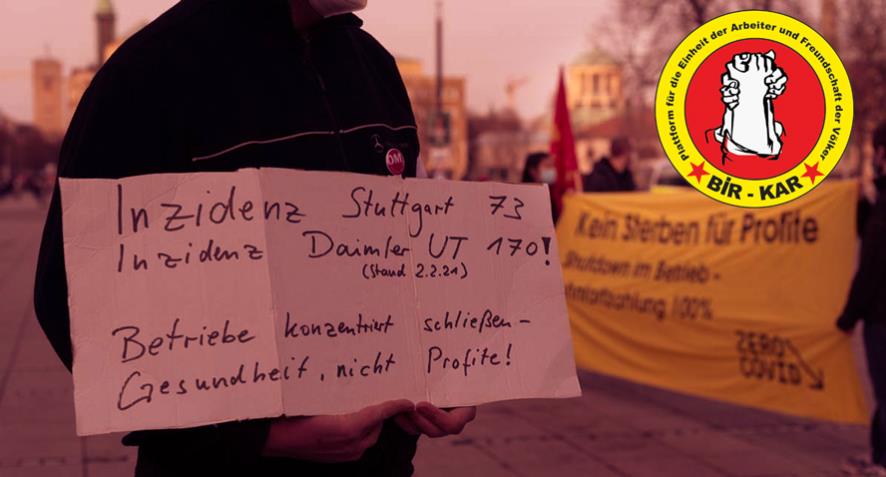 Inzidenz Stuttgart 73
Inzidenz Daimler UT 170!
(Stand 2.2.21)
Betriebe konzentriert schließen-
Gesundheit, nicht Profite!
Kein Sterben für Profite
Shutdown im Betrieb -
100%
ZERO
COVID
Plattform für die Einheit der Arbeiter und Freundschaft der Völker
BİR - KAR